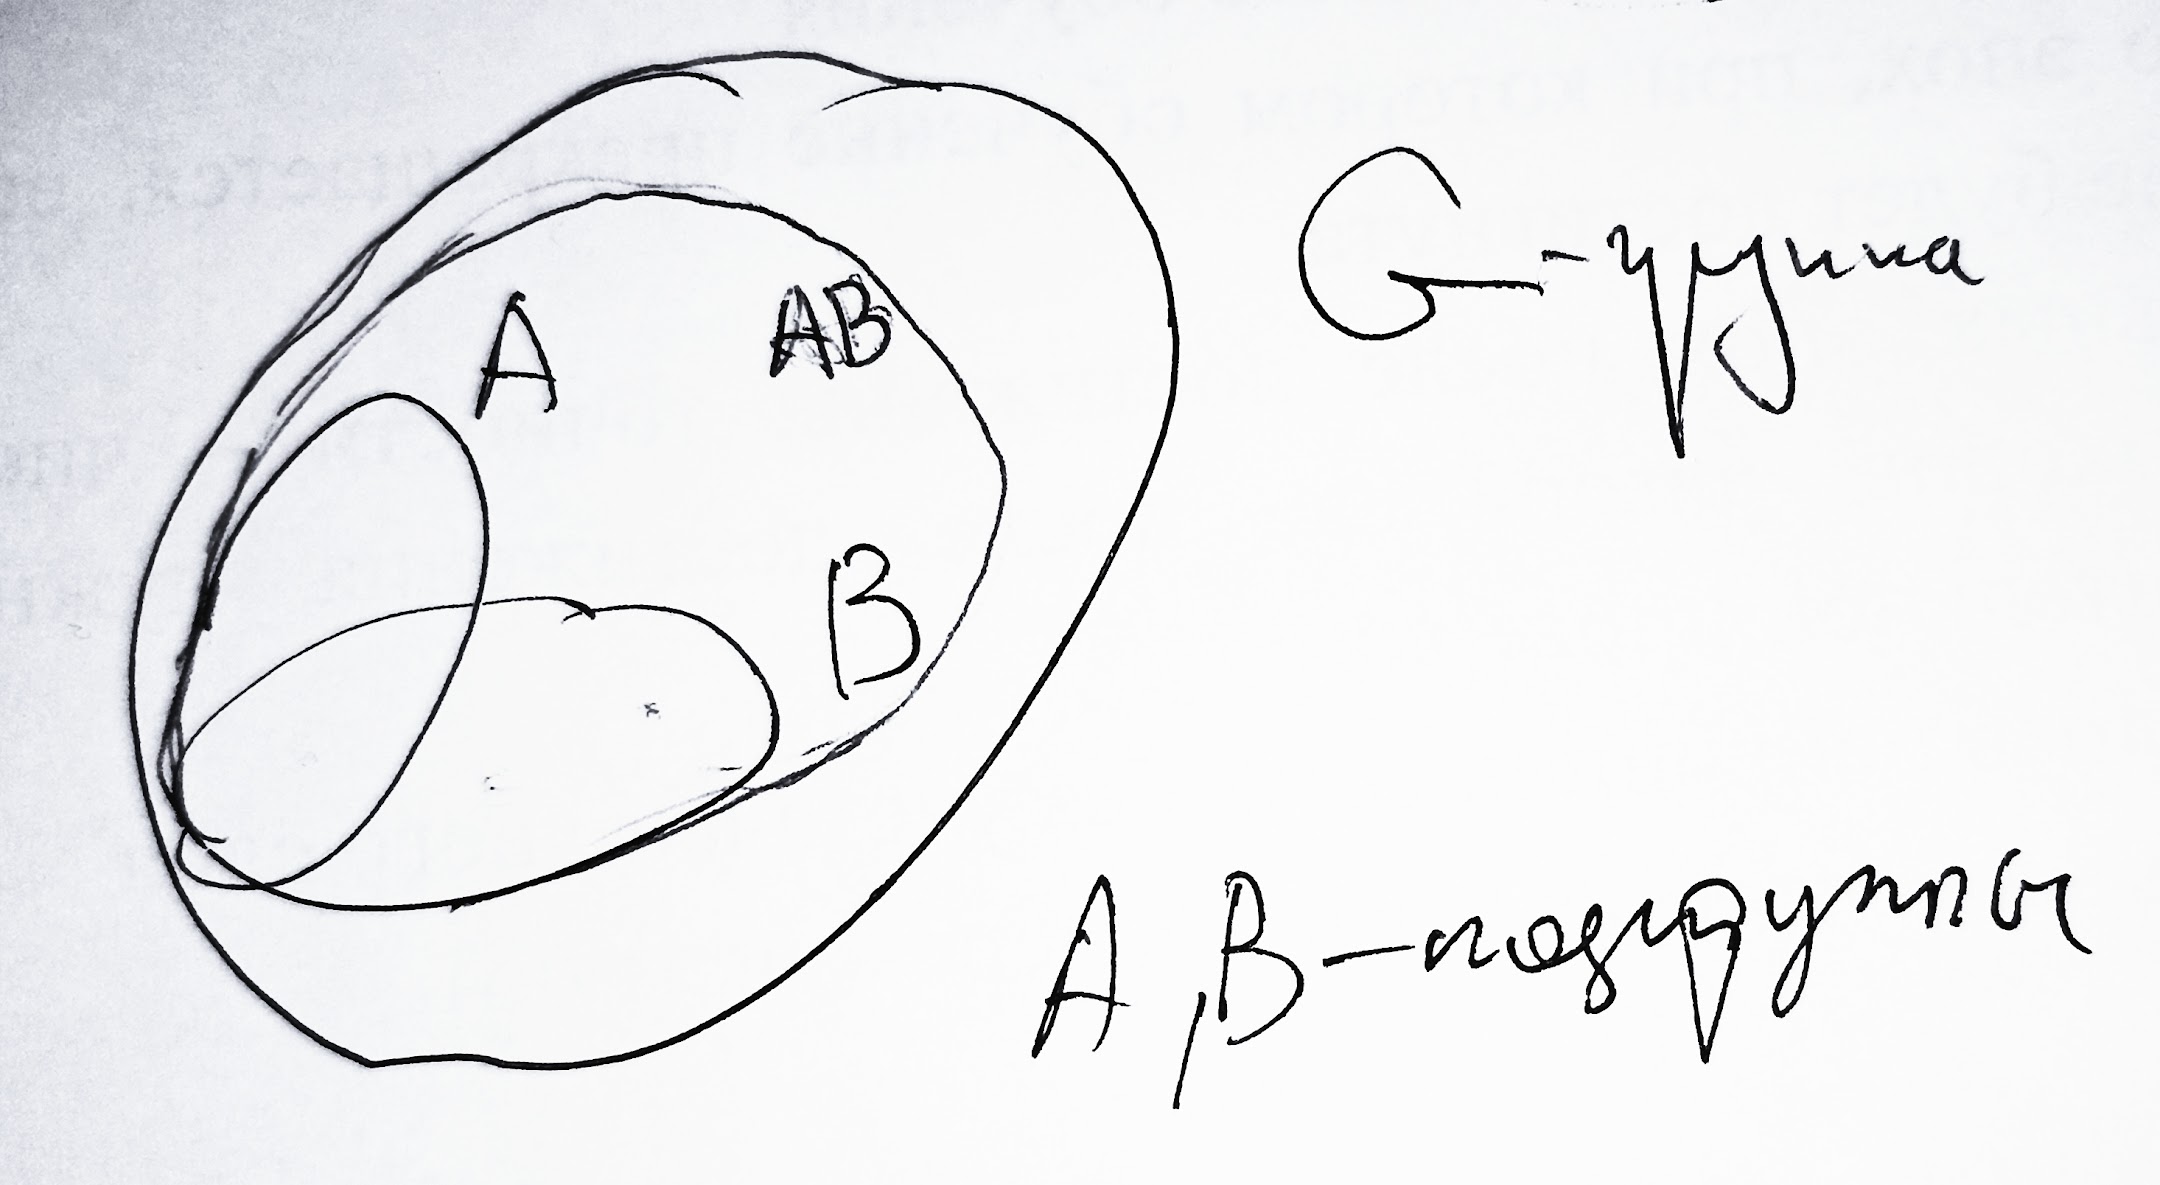 A
AB
B
G-группа
A,B-подгруппы